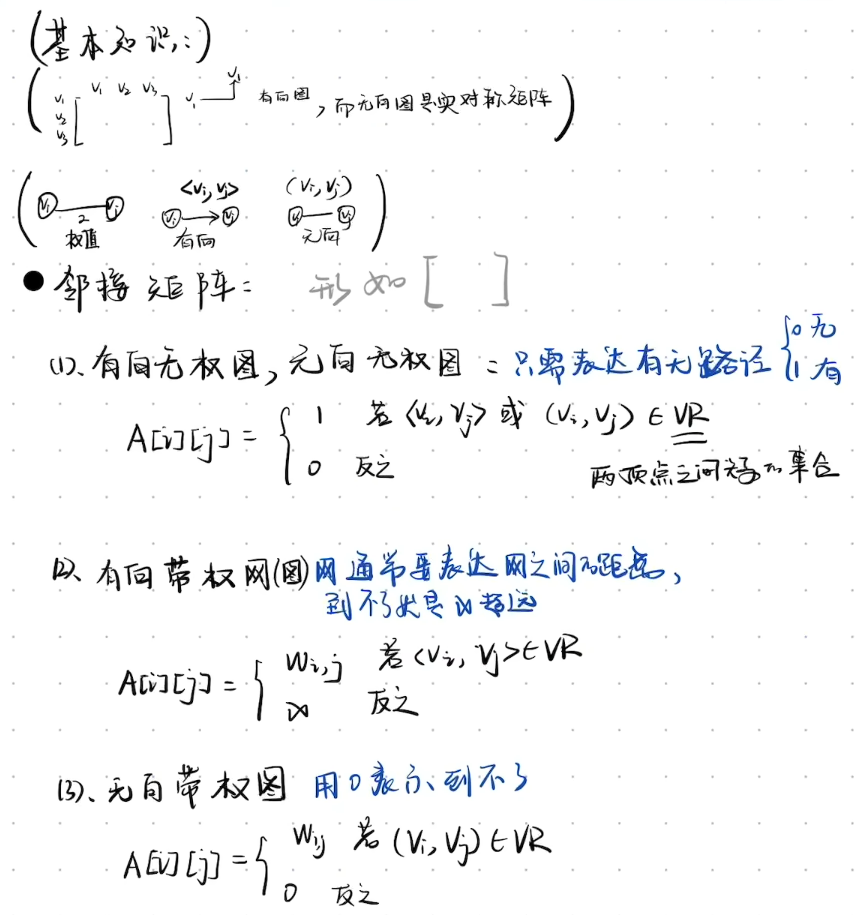 (基本知识:)
V₁ V₂ V₃
V₁
V₂
V₃
V₁ Vⱼ 有向图,而无向图是实对称矩阵
<Vi,Vj> (Vi,Vj)
Vi Vj Vi Vj Vi Vj
2
权值 有向 无向
● 邻接矩阵: 形如[ ]
(1)、有向无权图,无向无权图:只需表达有无路径 {0 无
1 有
A[i][j] = { 1 若<Vi,Vj>或(Vi,Vj)∈VR
0 反之 两顶点之间关系的集合
(2)、有向带权网(图)网通常要表达网之间的距离,
到不了就是∞超远
A[i][j] = { Wi,j 若<Vi,Vj>∈VR
∞ 反之
(3)、无向带权图 用0表示到不了
A[i][j] = { Wij 若(Vi,Vj)∈VR
0 反之